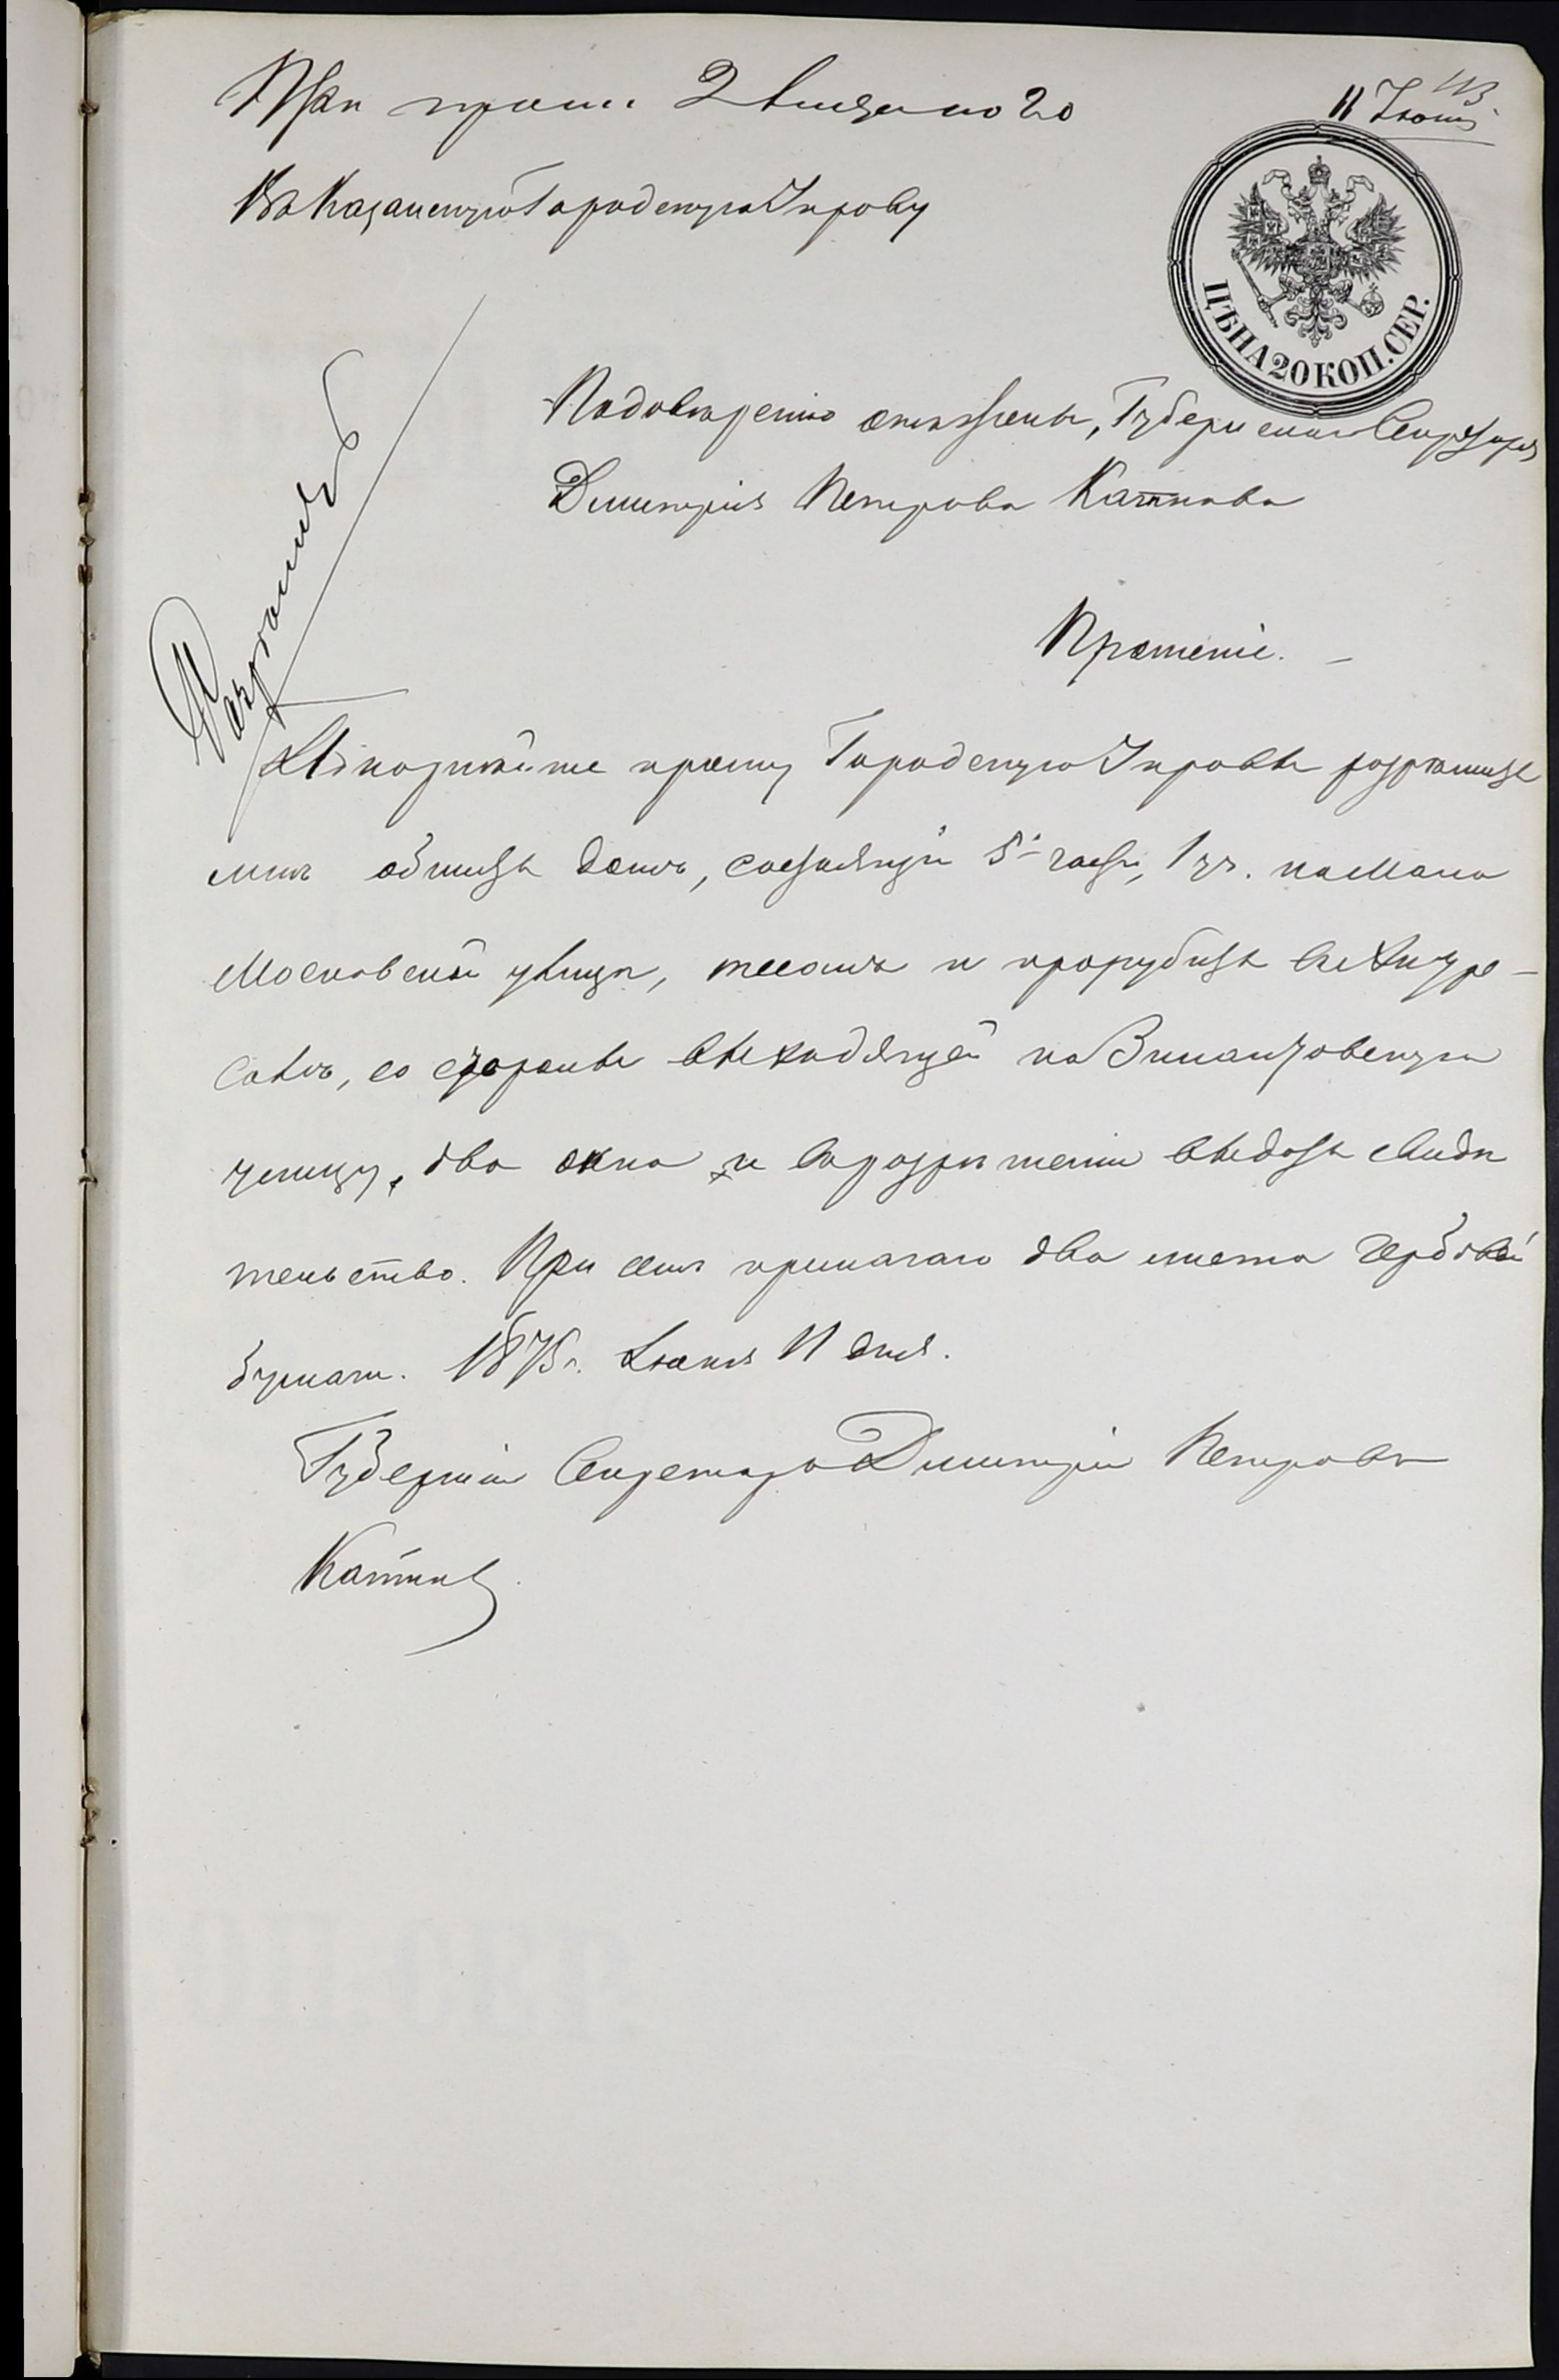 При прош. 2 листа по 20
11 Іюня
113.
Въ Казанскую Городскую Управу
ЦѢНА 20 КОП. СЕР.
По довѣренію отъ жены, Губернскаго Секретаря
Дмитрія Петрова Каткова
Прошеніе.
Разрѣшить
Покорнѣйше прошу Городскую Управу разрѣшить
мнѣ обшить домъ, состоящій 5й части, 1 кв. на Мало
Московской улицѣ, тесомъ и прорубить
со стороны выходящей на Зилантовскую
улицу, два окна и о разрѣшеніи выдать свидѣ
тельство. При семъ прилагаю два листа гербовой
бумаги. 1875 г. Іюня 11 дня.
Губернскій Секретарь Дмитрій Петровъ
Катковъ